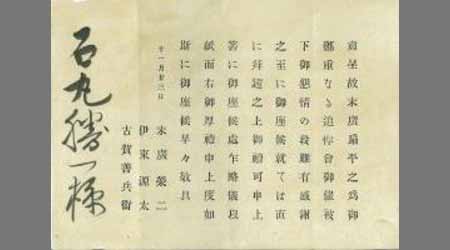 肅呈故末廣扇平之爲御
鄭重なる追悼會御催被
下御懇情の段難有感謝
之至に御座候就ては直
に拜趨之上御禮可申上
筈に御座候處乍略儀以
紙面右御厚禮申上度如
斯に御座候早々敬具
十一月廿三日
末廣榮二
伊東源太
古賀善兵衞
石丸勝一様